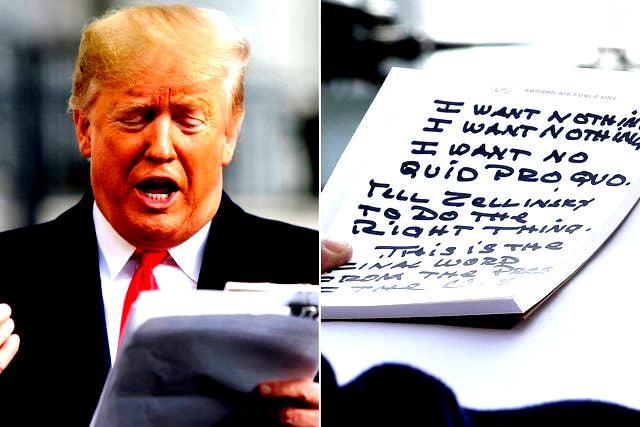 ABOARD AIR FORCE ONE
I WANT NOTHIN
I WANT NOTHING
I WANT NO
QUID PRO QUO.
TELL ZELLINSKY
TO DO THE
RIGHT THING.
THIS IS THE
FINAL WORD
FROM THE PRES
THE